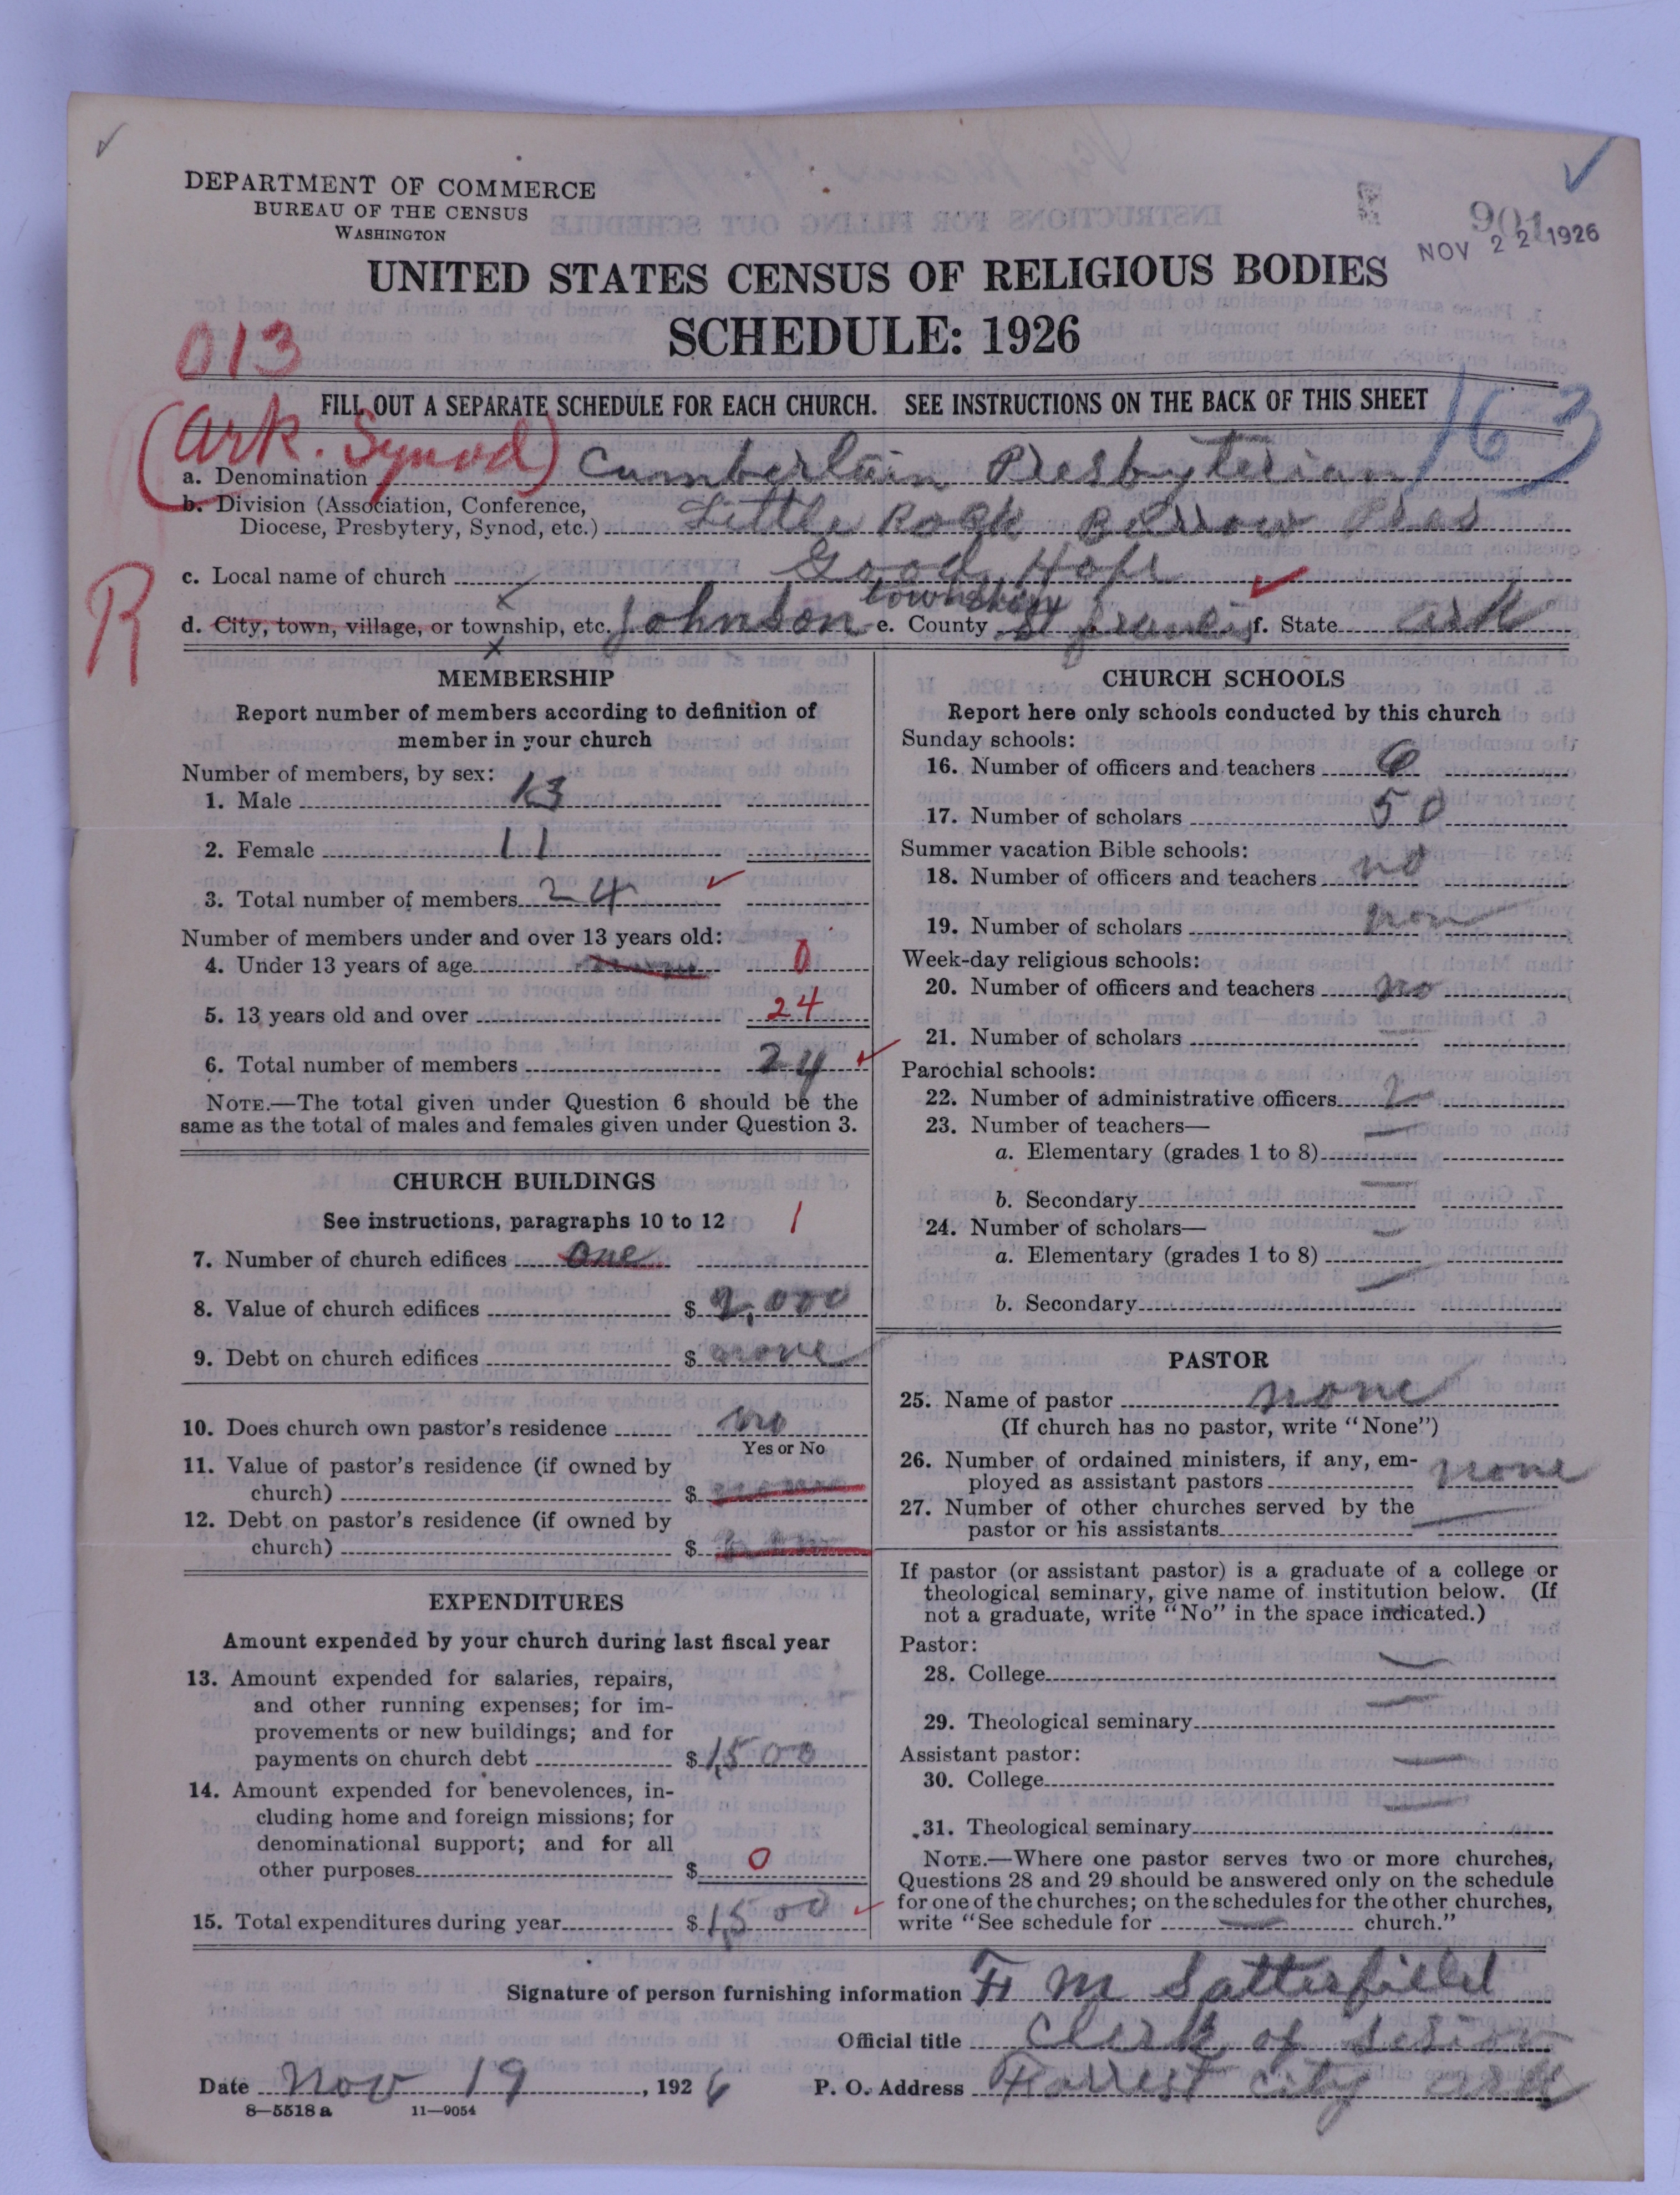 DEPARTMENT OF COMMERCE
BUREAU OF THE CENSUS
WASHINGTON
901
NOV 22 1926
UNITED STATES CENSUS OF RELIGIOUS BODIES
SCHEDULE: 1926
013
FILL OUT A SEPARATE SCHEDULE FOR EACH CHURCH. SEE INSTRUCTIONS ON THE BACK OF THIS SHEET
163
(Ark. Synod)
a. Denomination Cumberlain Presbyterian
b. Division (Association, Conference,
Diocese, Presbytery, Synod, etc.) Little Rock Burrow Pres
c. Local name of church Good Hope
R
township
d. City, town, village, or township, etc. Johnson e. County St francis f. State ark
MEMBERSHIP
Report number of members according to definition of
member in your church
Number of members, by sex:
1. Male 13
2. Female 11
3. Total number of members 24
Number of members under and over 13 years old:
4. Under 13 years of age 0
5. 13 years old and over 24
6. Total number of members 24
NOTE.—The total given under Question 6 should be the
same as the total of males and females given under Question 3.
CHURCH BUILDINGS
See instructions, paragraphs 10 to 12 1
7. Number of church edifices one
8. Value of church edifices $ 2,000
9. Debt on church edifices $ none
10. Does church own pastor's residence no
Yes or No
11. Value of pastor's residence (if owned by
church) $
12. Debt on pastor's residence (if owned by
church) $
EXPENDITURES
Amount expended by your church during last fiscal year
13. Amount expended for salaries, repairs,
and other running expenses; for im-
provements or new buildings; and for
payments on church debt $ 1,500
14. Amount expended for benevolences, in-
cluding home and foreign missions; for
denominational support; and for all
other purposes $ 0
15. Total expenditures during year $ 1,500
CHURCH SCHOOLS
Report here only schools conducted by this church
Sunday schools:
16. Number of officers and teachers 6
17. Number of scholars 50
Summer vacation Bible schools:
18. Number of officers and teachers no
19. Number of scholars non
Week-day religious schools:
20. Number of officers and teachers no
21. Number of scholars
Parochial schools:
22. Number of administrative officers 2
23. Number of teachers—
a. Elementary (grades 1 to 8)
b. Secondary
24. Number of scholars—
a. Elementary (grades 1 to 8)
b. Secondary
PASTOR
25. Name of pastor none
(If church has no pastor, write "None")
26. Number of ordained ministers, if any, em-
ployed as assistant pastors none
27. Number of other churches served by the
pastor or his assistants
If pastor (or assistant pastor) is a graduate of a college or
theological seminary, give name of institution below. (If
not a graduate, write "No" in the space indicated.)
Pastor:
28. College
29. Theological seminary
Assistant pastor:
30. College
31. Theological seminary
NOTE.—Where one pastor serves two or more churches,
Questions 28 and 29 should be answered only on the schedule
for one of the churches; on the schedules for the other churches,
write "See schedule for church."
Signature of person furnishing information F M Satterfield
Official title Clerk of Sesion
Date Nov 19, 1926 P. O. Address Forrest City ark
8—5518 a 11—9054